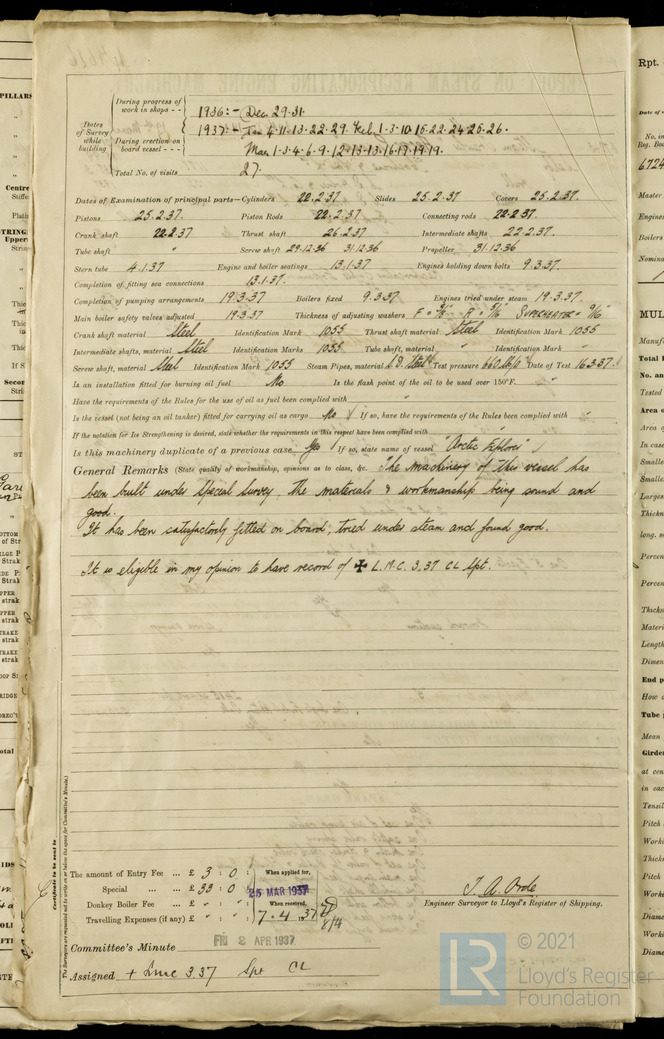 PILLARS
Centre
Dates of Survey while building
During progress of work in shops - -
1936:- Dec 29.31.
1937:- Jan 4.11.13.22.29. Feb 1.3.10.15.22.24.25.26.
During erection on board vessel - - -
Mar 1.3.4.6.9.12.13.13.16.17.19.19.
Total No. of visits 27.
Dates of Examination of principal parts—Cylinders 22.2.37. Slides 25.2.37. Covers 25.2.37.
Pistons 25.2.37. Piston Rods 22.2.37. Connecting rods 22.2.37.
Crank shaft 22.2.37 Thrust shaft 26.2.37 Intermediate shafts 22.2.37.
Tube shaft " Screw shaft 29.12.36 31.12.36 Propeller 31.12.36
Stern tube 4.1.37 Engine and boiler seatings 13.1.37 Engines holding down bolts 9.3.37.
Completion of fitting sea connections 13.1.37.
Completion of pumping arrangements 19.3.37 Boilers fixed 9.3.37 Engines tried under steam 19.3.37.
Main boiler safety valves adjusted 19.3.37 Thickness of adjusting washers
Crank shaft material Steel Identification Mark 1055 Thrust shaft material Steel Identification Mark 1055
Intermediate shafts, material Steel Identification Marks 1055 Tube shaft, material " Identification Mark "
Screw shaft, material Steel Identification Mark 1055 Steam Pipes, material Steel Test pressure 660 Date of Test 16.3.37.
Is an installation fitted for burning oil fuel No Is the flash point of the oil to be used over 150°F. "
Have the requirements of the Rules for the use of oil as fuel been complied with "
Is the vessel (not being an oil tanker) fitted for carrying oil as cargo No If so, have the requirements of the Rules been complied with "
If the notation for Ice Strengthening is desired, state whether the requirements in this respect have been complied with
Is this machinery duplicate of a previous case Yes If so, state name of vessel "Arctic Explorer"
General Remarks (State quality of workmanship, opinions as to class, &c. The machinery of this vessel has
been built under Special Survey, the materials & workmanship being sound and
good.
It has been satisfactorily fitted on board, tried under steam and found good.
It is eligible in my opinion to have record of ✠ L.M.C. 3.37 CL Spt.
Certificate to be sent to
(The Surveyors are requested not to write on or below the space for Committee's Minute.)
The amount of Entry Fee ... £ 3 : 0 :
Special ... ... £ 33 : 0 :
Donkey Boiler Fee ... £ " : " :
Travelling Expenses (if any) £ " : " :
When applied for,
25 MAR 1937
When received,
7.4.1937
8/4
T. A. Orde
Engineer Surveyor to Lloyd's Register of Shipping.
Committee's Minute FRI 2 APR 1937
Assigned + Lmc 3.37 Spt CL
Rpt.
6724
Master
Engines
Boilers
MUL
LR
© 2021
Lloyd's Register
Foundation